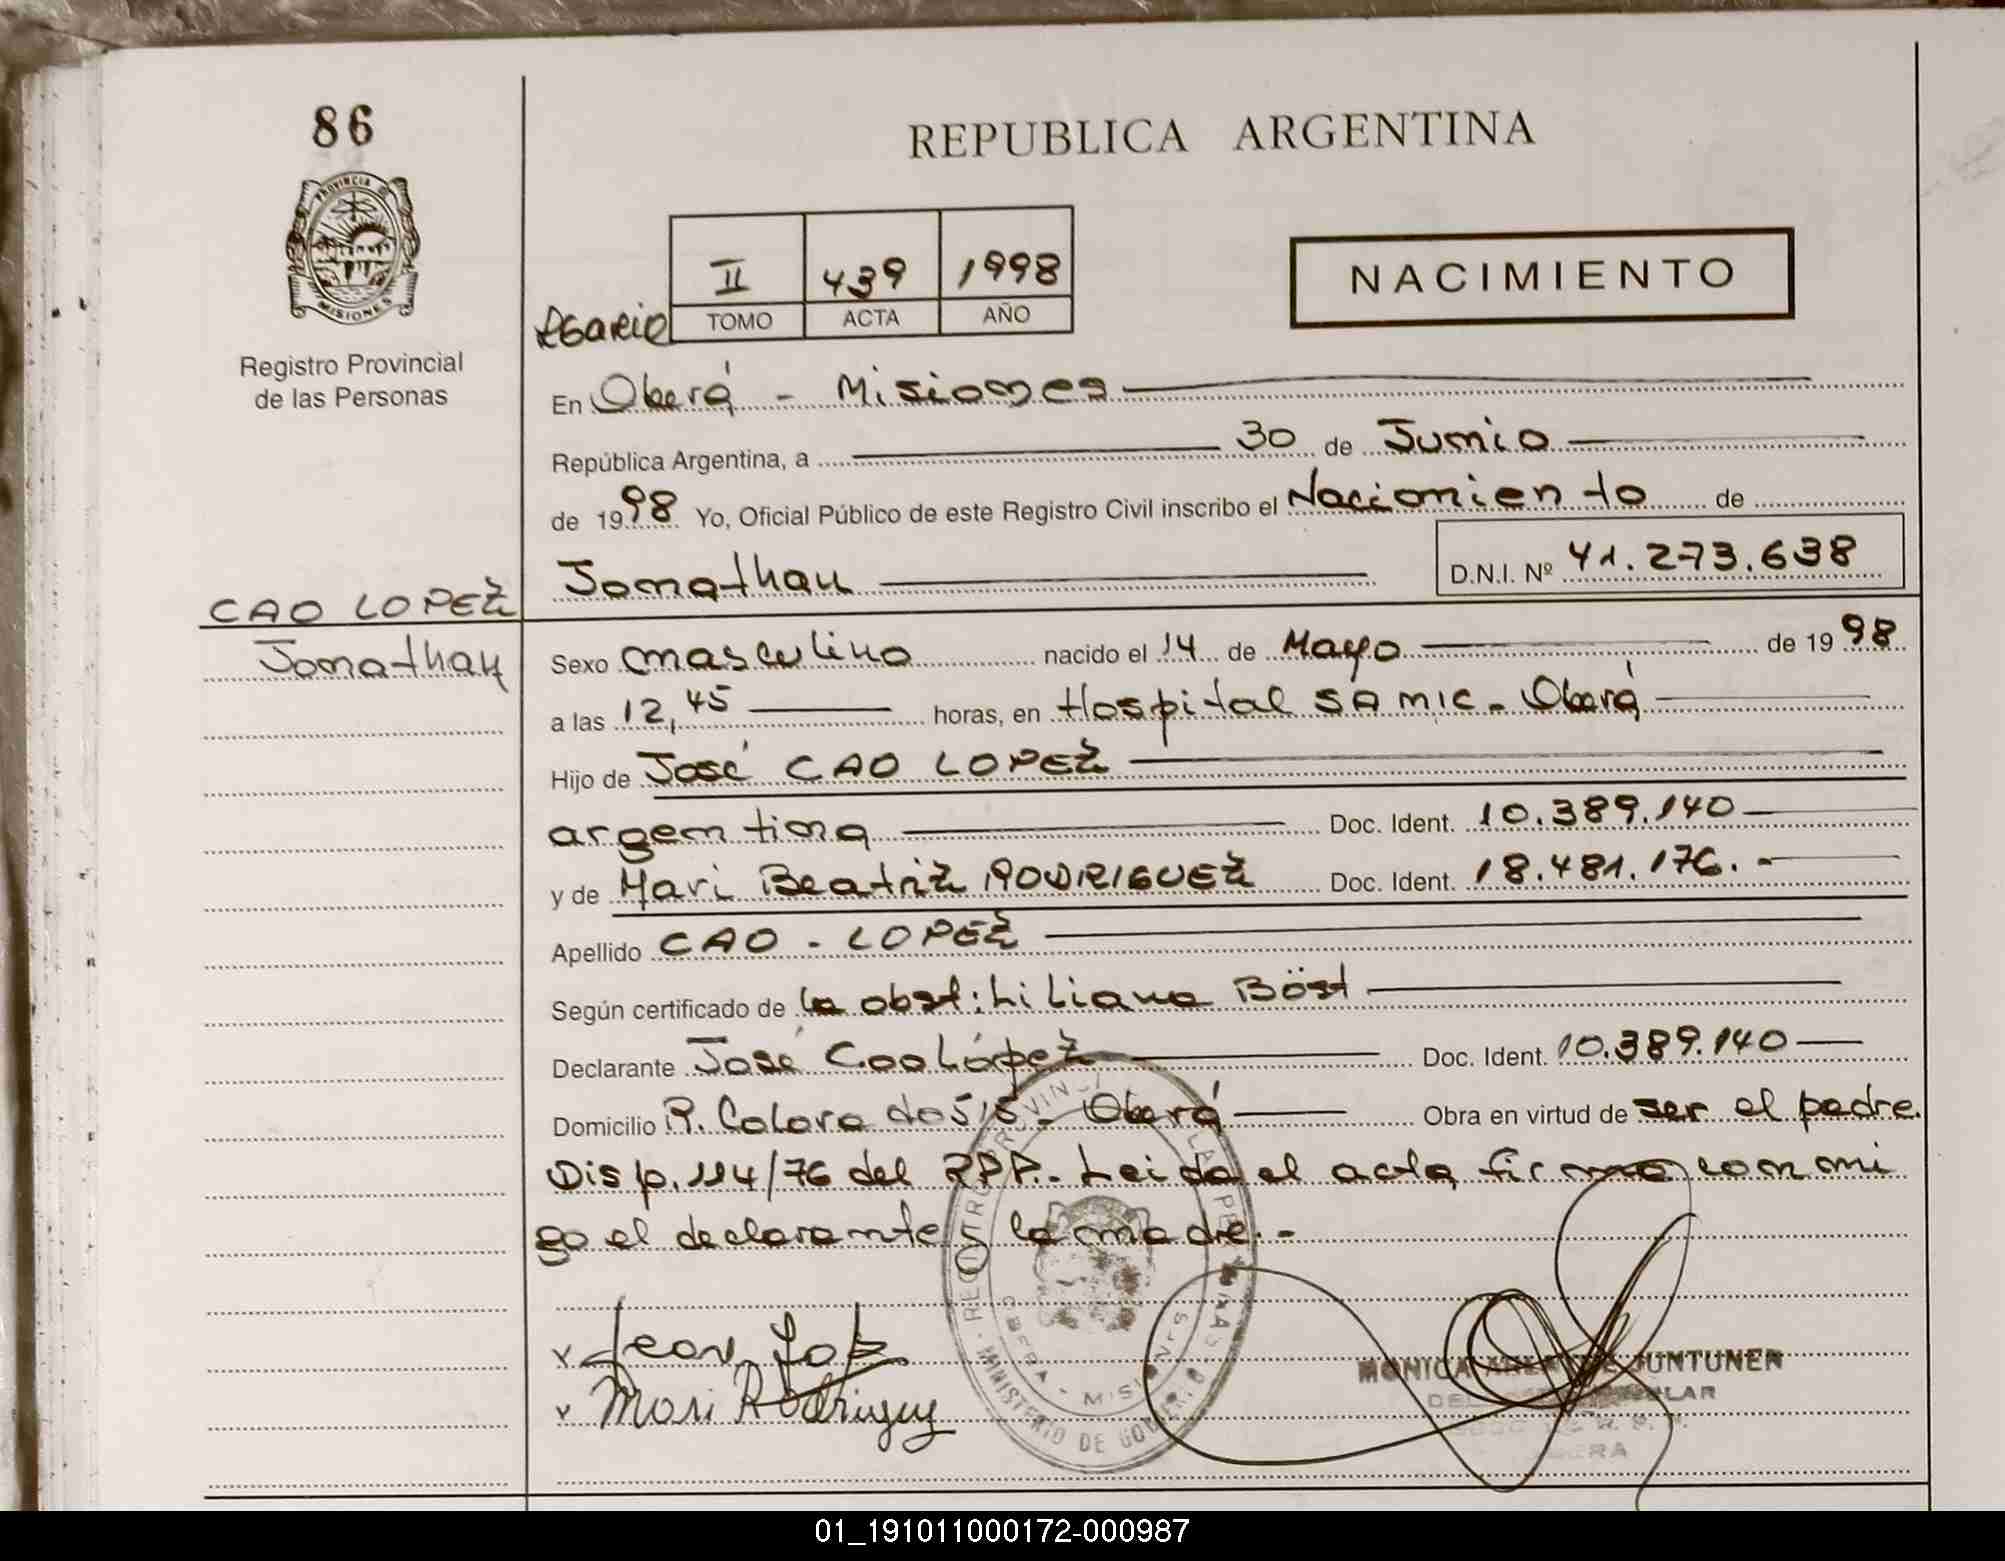 86
REPUBLICA ARGENTINA
PROVINCIA
MISIONES
II 439 1998
TOMO ACTA AÑO
NACIMIENTO
Registro Provincial
de las Personas
En Oberá - Misiones
República Argentina, a 30 de Junio
de 1998 Yo, Oficial Público de este Registro Civil inscribo el Nacimiento de
Jonathan D.N.I. Nº 41.273.638
CAO LOPEZ
Jonathan
Sexo masculino nacido el 14 de Mayo de 1998
a las 12,45 horas, en Hospital SAMIC - Oberá
Hijo de José CAO LOPEZ
argentina Doc. Ident. 10.389.140
y de Mari Beatriz RODRIGUEZ Doc. Ident. 18.481.176.-
Apellido CAO - LOPEZ
Según certificado de la obst: Liliana Böst
Declarante José Cao López Doc. Ident. 10.389.140
Domicilio P. Colorado 515 - Oberá Obra en virtud de ser el padre.
Disp. 114/76 del RPP.- Leida el acta firma conmi
go el declarante y la madre.-
Mari Rodriguez
REGISTRO PROVINCIAL DE LAS PERSONAS
MINISTERIO DE GOBIERNO
OBERA - MISIONES
MONICA JUNTUNEN
01_191011000172-000987